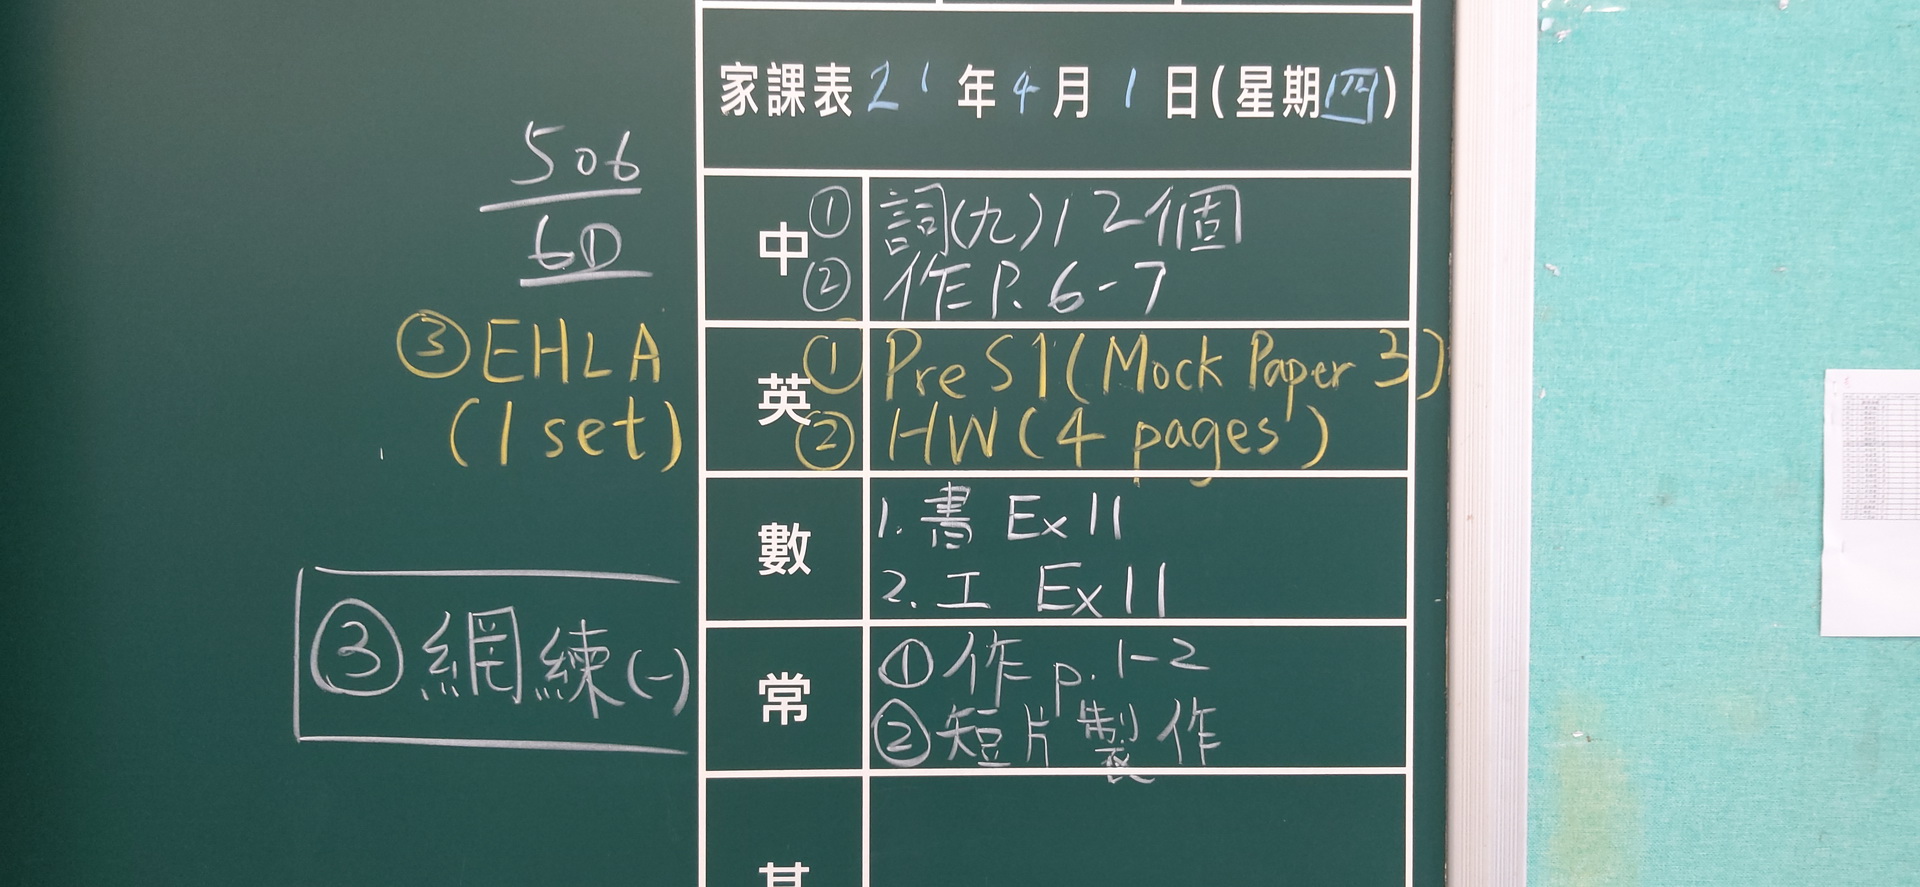 家課表 21 年 4 月 1 日(星期四)
506
6D
中
① 詞(九)12個
② 作P.6-7
英
① Pre S1 (Mock Paper 3)
② HW (4 pages)
③ EHLA
(1 set)
數
1. 書 Ex 11
2. 工 Ex 11
常
① 作 p.1-2
② 短片製作
③ 網練(一)
其